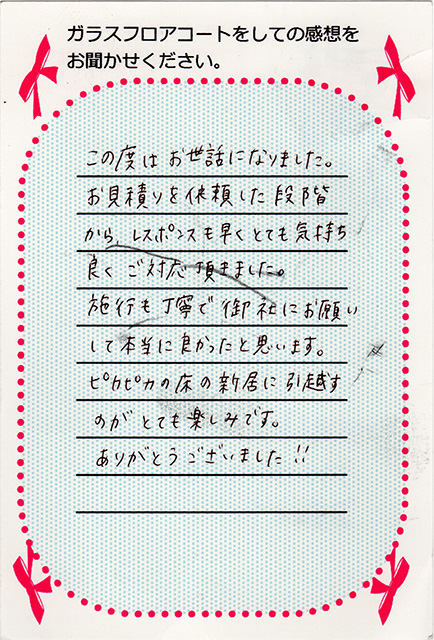 ガラスフロアコートをしての感想を
お聞かせください。
この度はお世話になりました。
お見積りを依頼した段階
から、レスポンスも早くとても気持ち
良くご対応頂きました。
施行も丁寧で御社にお願い
して本当に良かったと思います。
ピカピカの床の新居に引越す
のがとても楽しみです。
ありがとうございました!!